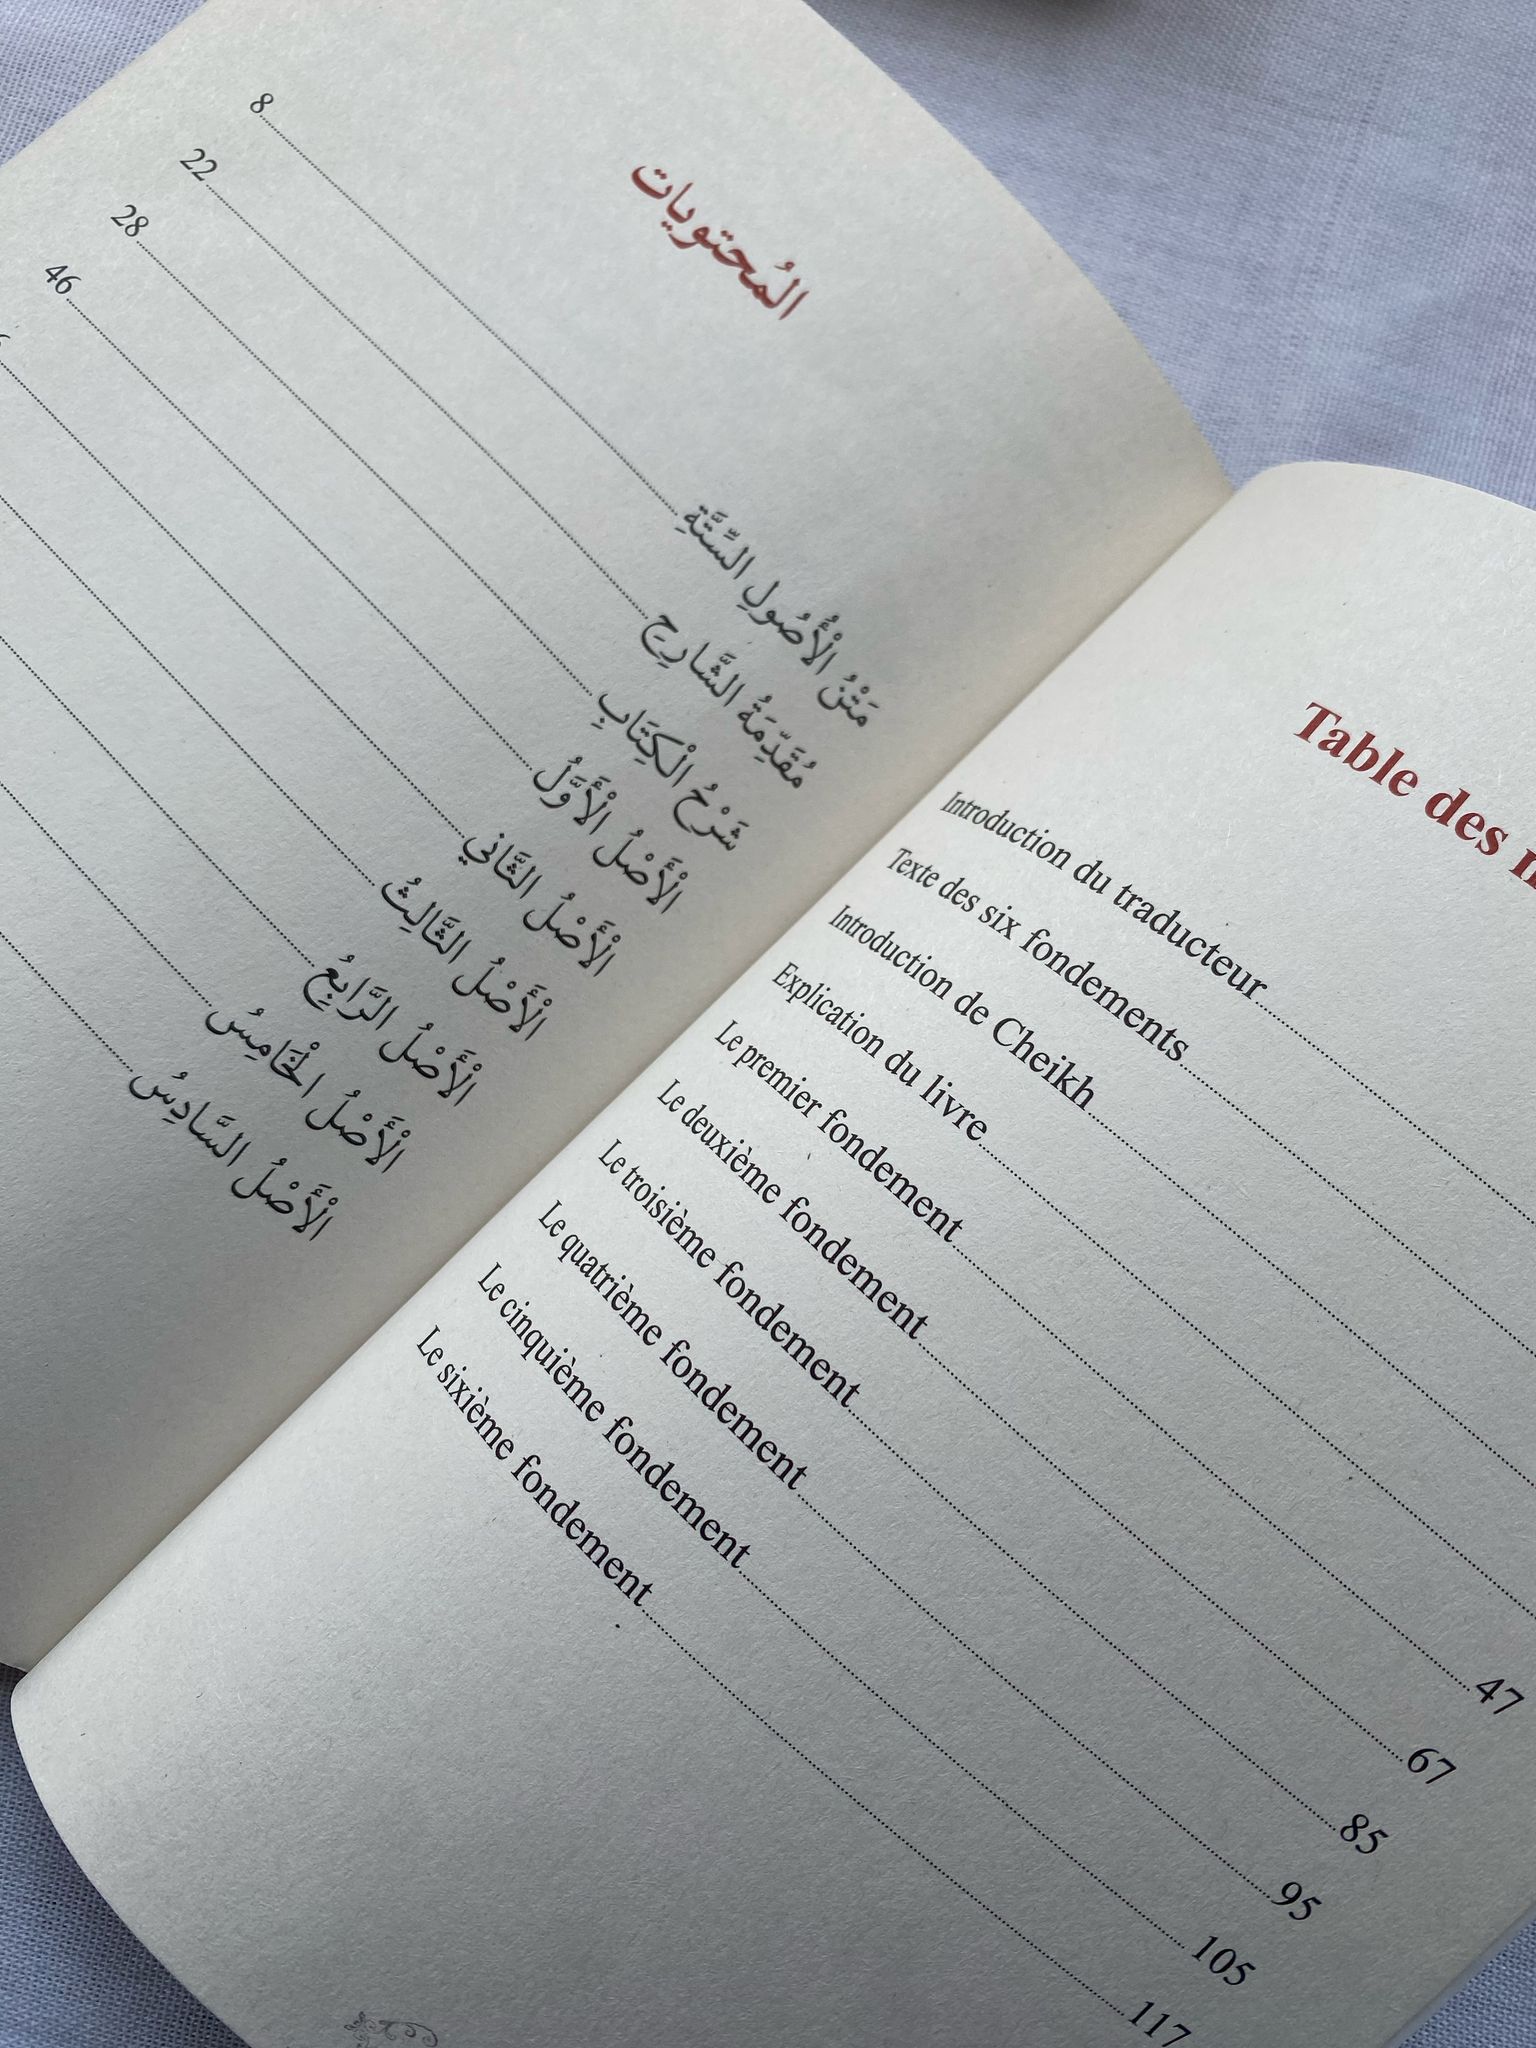 المُحتويات
مَتْنُ الْأُصُولِ السِّتَّةِ 8
مُقَدِّمَةُ الشَّارِحِ 22
شَرْحُ الْكِتَابِ 28
الْأَصْلُ الْأَوَّلُ 46
الْأَصْلُ الثَّانِي
الْأَصْلُ الثَّالِثُ
الْأَصْلُ الرَّابِعُ
الْأَصْلُ الْخَامِسُ
الْأَصْلُ السَّادِسُ
Table des
Introduction du traducteur
Texte des six fondements
Introduction de Cheikh
Explication du livre
Le premier fondement 47
Le deuxième fondement 67
Le troisième fondement 85
Le quatrième fondement 95
Le cinquième fondement 105
Le sixième fondement 117